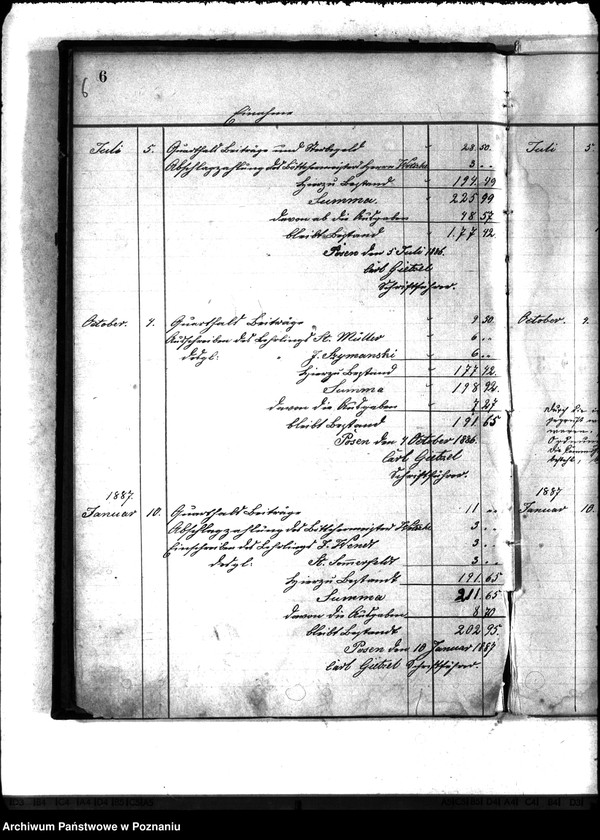 6
6
Einnahme
Juli 5. Quarthals Beiträge und Sterbegeld 28 50.
Abschlagzahlung des Böttchermeisters Herrn 3 ..
Hierzu Bestand 194. 49
Summa. 225 99
davon ab die Ausgaben 48 57
bleibt Bestand 177 42.
Posen den 5 Juli 1886.
Carl Gützel
Schriftführer.
October. 4. Quarthals Beiträge 9 50.
Ausschreiben des Lehrlings A. Müller 6 ..
desgl. J. Szymanski 6 ..
Hierzu Bestand 177 42.
Summa 198 92.
davon die Ausgaben 7 27
bleibt Bestand 191 65
Posen den 4 October 1886.
Carl Gützel
Schriftführer.
1887.
Januar 10. Quarthals Beiträge 11 ..
Abschlagzahlung des Böttchermeisters 3 ..
Einschreiben des Lehrlings J. Wendt 3 ..
desgl. A. Sommerfeldt 3 ..
Hierzu Bestandt 191. 65
Summa 211. 65
davon die Ausgaben 8 70
bleibt Bestandt 202 95.
Posen den 10 Januar 1887
Carl Gützel Schriftführer.
8
Juli 5.
October.
durch die
1887
Januar 10.
Archiwum Państwowe w Poznaniu